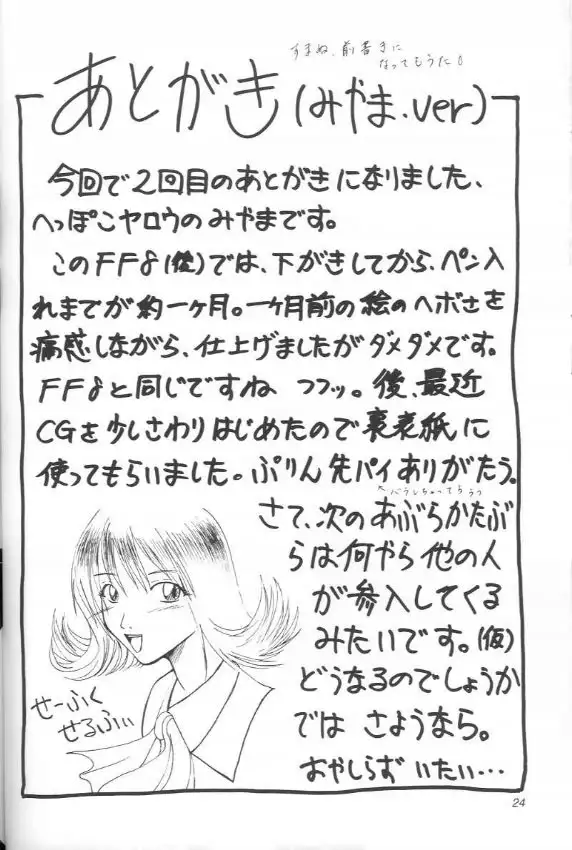 すまぬ、前書きに
なってもうた。
あとがき(みやま.ver)
今回で2回目のあとがきになりました、
へっぽこヤロウのみやまです。
このFF8(後)では、下がきしてから、ペン入
れまでが約一ヶ月。一ヶ月前の絵のヘボさを
痛感しながら、仕上げましたがダメダメです。
FF8と同じですね フフッ。後、最近
CGを少しさわりはじめたので裏表紙に
使ってもらいました。ぷりん先パイありがたう。
さて、次のあぶらかたぶ
らは何やら他の人
が参入してくる
みたいです。(仮)
どうなるのでしょうか
では さようなら。
おやしらず いたい…
せーふく
せるふぃ
24